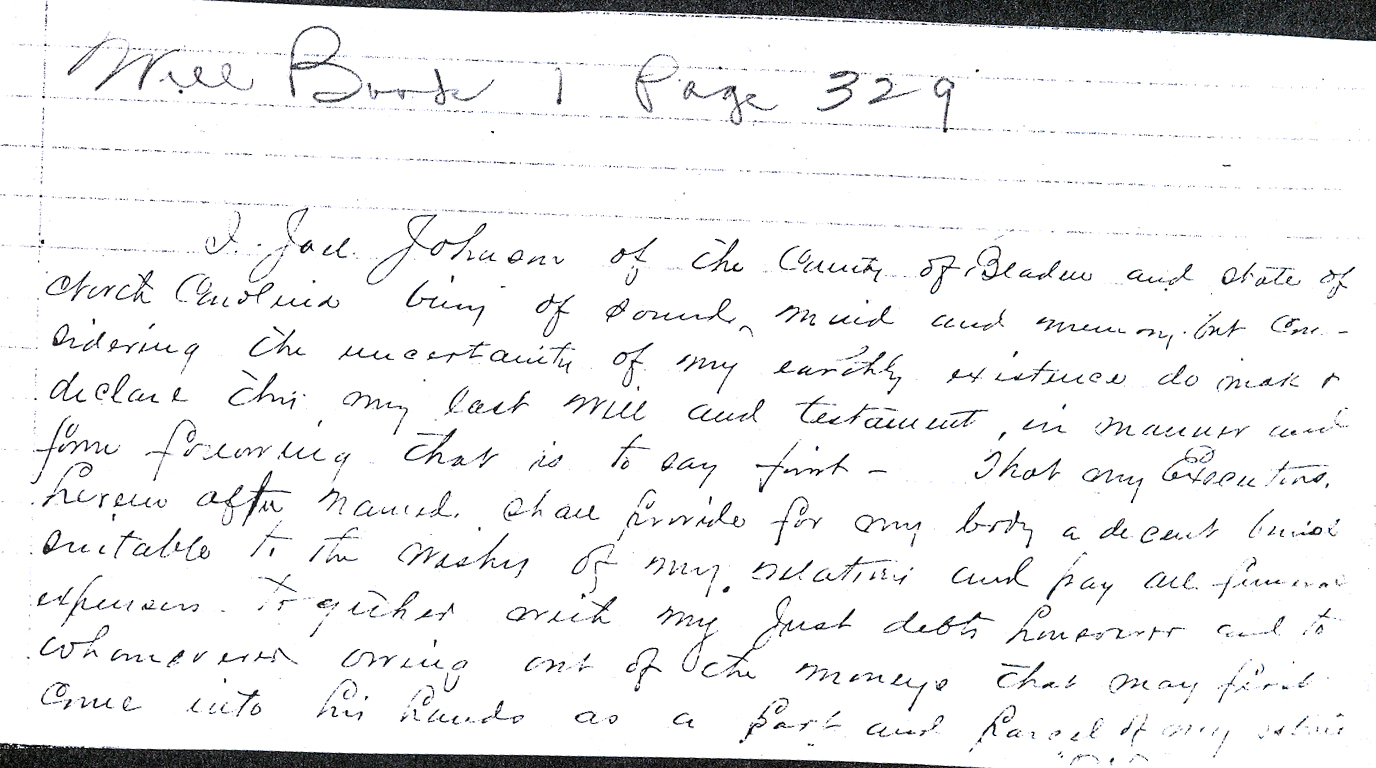 Will Book 1 Page 329
I. Joel Johnson of the County of Bladen and State of
North Carolina being of sound, mind and memory. but con-
sidering the uncertainty of my earthly existence do mak &
declare this my last will and testament, in manner and
form following that is to say first - That my Executors.
herein after named. shall provide for my body a decent burial
suitable to the wishes of my relations and pay all funeral
expenses. Together with my Just debts howsoever and to
whomsoever owing out of the moneys that may first
come into his hands as a part and parcel of my estate